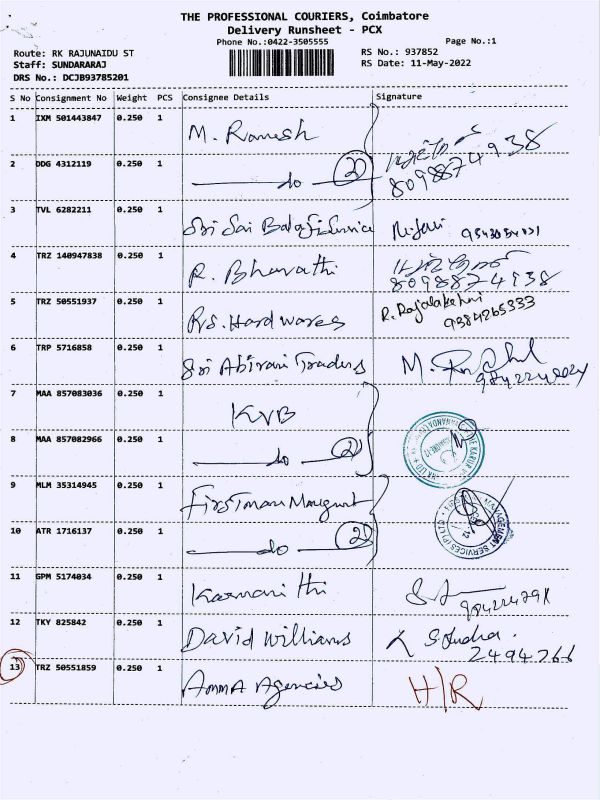 THE PROFESSIONAL COURIERS, Coimbatore
Delivery Runsheet - PCX
Phone No.:0422-3505555
Page No.:1
Route: RK RAJUNAIDU ST
RS No.: 937852
Staff: SUNDARARAJ
RS Date: 11-May-2022
DRS No.: DCJB93785201
S No Consignment No Weight PCS Consignee Details Signature
1 IXM 501443847 0.250 1 M. Ramesh
2 DDG 4312119 0.250 1 do 2 8098874938
3 TVL 6282211 0.250 1 Sri Sai Balaji Service
4 TRZ 140947838 0.250 1 R. Bharathi 8098874938
5 TRZ 50551937 0.250 1 Rs. Hardwares R. Rajalakshmi 9384265333
6 TRP 5716858 0.250 1 Sri Abirami Traders M.
7 MAA 857083036 0.250 1 KVB
8 MAA 857082966 0.250 1 do 2
9 MLM 35314945 0.250 1
10 ATR 1716137 0.250 1 do 2
11 GPM 5174034 0.250 1
12 TKY 825842 0.250 1 David Williams 2494266
13 TRZ 50551859 0.250 1 Amma Agencies H/R